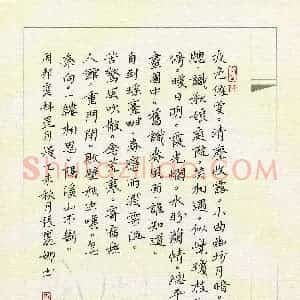 夜色催更。清塵收露。小曲幽坊月暗。
窗。識秋娘庭院。笑相遇。似覺瓊枝
倚。暖日明霞光爛。水盼蘭情。總平
畫圖中。舊識春風面。誰知道。
自到瑤臺畔。眷戀雨潤雲溫。
苦驚風吹散。念荒寒。寄宿無
人館。重門閉。敗壁秋蟲嘆。怎
奈向。一縷相思。隔溪山不斷。
周邦彥拜星月慢 秋月張
Shufaziliao.com